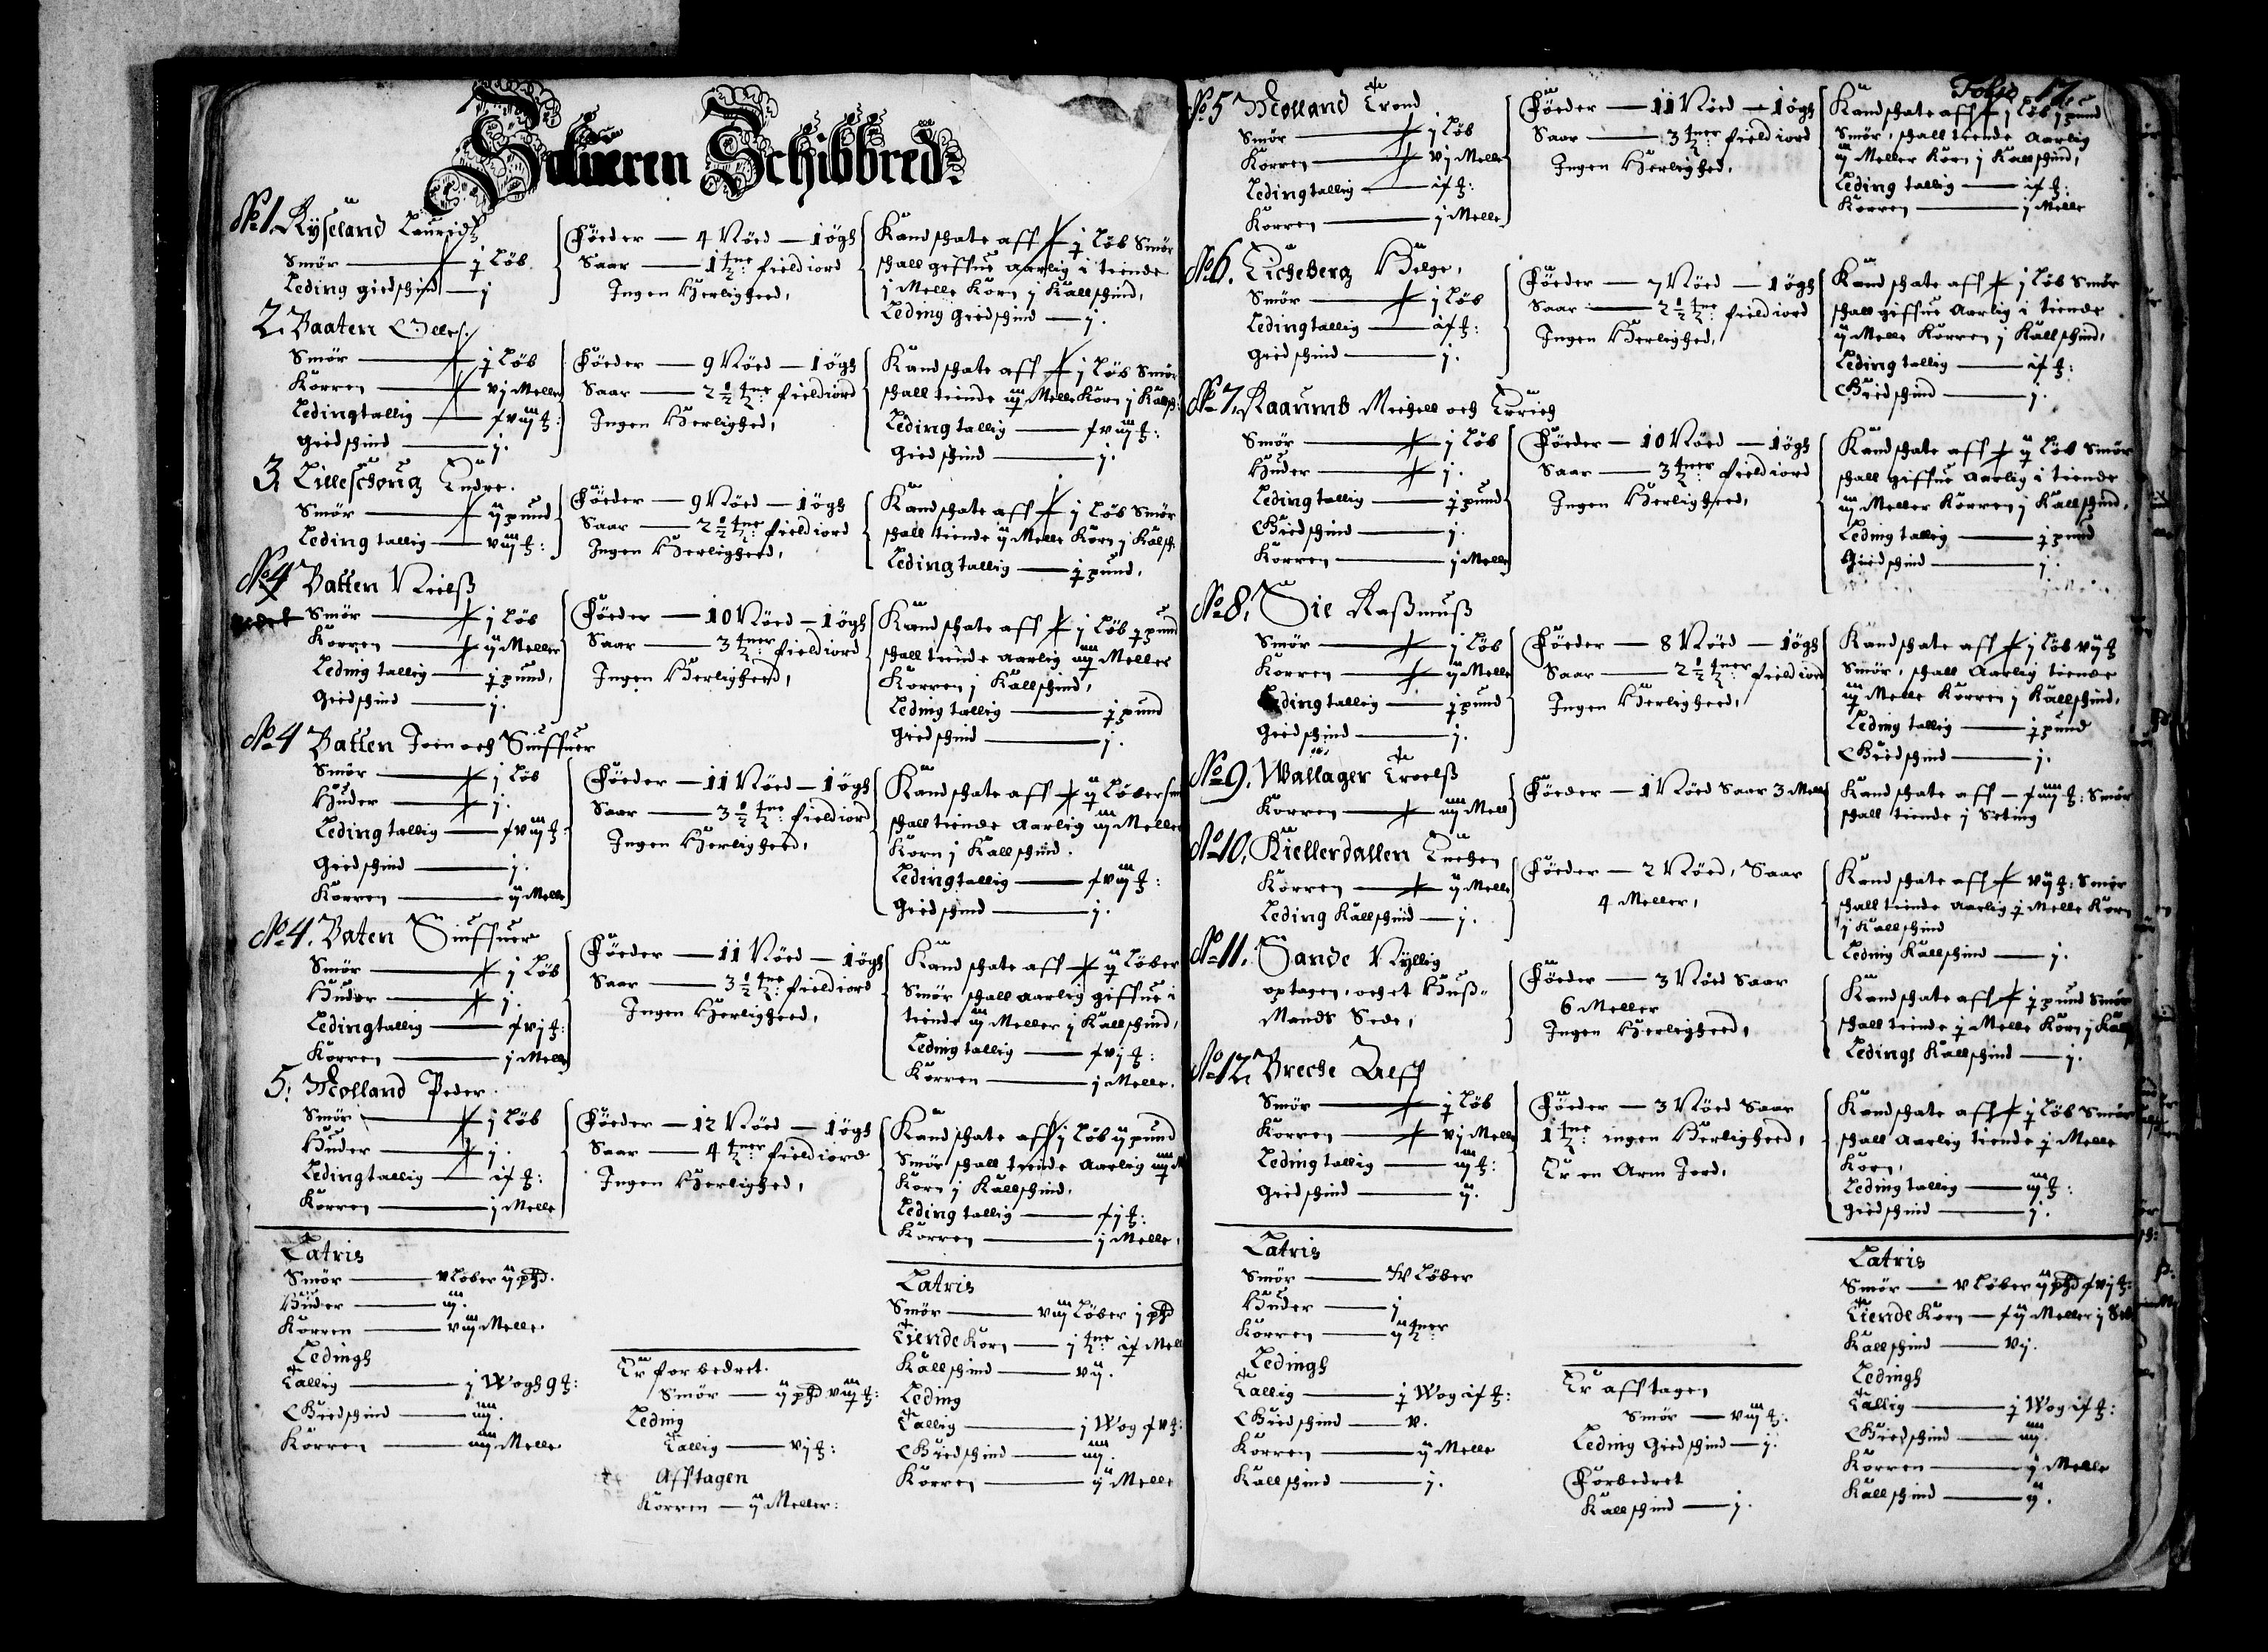 Salueren Schibbred:
No 1. Ryseland Lauridz
Smør — ½ Løb
Leding giedschind — j
Føeder — 4 Nøed — 1 øgh
Saar — 1 tne fieldiord
Ingen Herligheed,
Kand schate aff ½ Løb Smør
schall giffue aarlig i tiende
j Melle Korn j Kallschind,
Leding Giedschind — j.
2. Baaten Ellef
Smør — ½ Løb
Korren — vj Meller
Leding tallig —
Giedschind — j.
Føeder — 9 Nøed — 1 øgh
Saar — 2½ tne: fieldiord
Ingen Herlighed,
Kand schate aff j Løb Smør
schall tiende Melle Korn j Kallsch:
Leding tallig —
Giedschind — j.
3. Lilleschoug Endre.
Smør — ij pund
Leding tallig —
Føeder — 9 Nøed — 1 øgh
Saar — 2½ tne: fieldiord
Ingen Herligheed,
Kand schate aff j Løb Smør
schall tiende ij Melle Korn j Kalsch:
Leding tallig — ½ pund,
No 4 Batten Nielß
Smør — j Løb
Korren — ij Meller
Leding tallig — ½ pund,
Giedschind — j.
Føeder — 10 Nøed — 1 øgh
Saar — 3 tner fieldiord
Ingen Herligheed,
Kand schate aff j Løb ½ pund
schall tiende aarlig Meller
Korren j Kallschind,
Leding tallig — ½ pund
Giedschind — j.
No 4 Batten Joen och Siuffuer
Smør — j Løb
Huder — j.
Leding tallig —
Giedschind — j.
Korren — ij Melle
Føeder — 11 Nøed — 1 øgh
Saar — 3½ tne: fieldiord
Ingen Herligheed,
Kand schate aff ij Løber
schall tiende Aarlig iij Meller
Korn j Kallschind.
Leding tallig —
Giedschind — j.
No 4. Baten Siuffuer
Smør — j Løb
Huder — j.
Leding tallig —
Korren — j Melle
Føeder — 11 Nøed — 1 øgh
Saar — 3½ tne: fieldiord
Ingen Herligheed,
Kand schate aff ij Løber
Smør schall aarlig giffue i
tiende iij Meller j Kallschind,
Leding tallig —
Korren — j Melle.
5: Molland Peder.
Smør — j Løb
Huder — j.
Leding tallig —
Korren — j Melle
Føeder — 12 Nøed — 1 øgh
Saar — 4 tner fieldiord
Ingen Herlighed,
Kand schate aff j Løb ij pund
Smør schall tiende Aarlig
Korn j Kallschind.
Leding tallig —
Korren — j Melle,
Latris
Smør — v Løber ij phd.
Huder — iij.
Korren — Melle.
Ledingh
Tallig — j Wogh 9
Giedschind — iiij.
Korren — iiij Melle
Er forbedret.
Smør — ij phd
Leding
Tallig — vj
Afftagen
Korren — ij Meller:
Latris
Smør — viij Løber j phd
Tiende Korn — j tne
Kallschind — vij.
Leding
Tallig — j Wog
Giedschind — iiij.
Korren — ij Melle
Folio 17
No 5 Molland Trond
Smør — j Løb
Korren — vj Melle
Leding tallig —
Korren — j Melle
Føeder — 11 Nøed — 1 øgh
Saar — 3 tner fieldiord
Ingen Herlighed,
Kand schate aff j Løb ½ pund
Smør, schall tiende aarlig
iij Meller Korn j Kallschind,
Leding tallig —
Korren — j Melle
No 6. Eicheberg Helge,
Smør — j Løb
Leding tallig —
Giedschind — j.
Føeder — 7 Nøed — 1 øgh
Saar — 2½ tne: fieldiord
Ingen Herlighed,
Kand schate aff j Løb Smør
schall giffue Aarlig i tiende
ij Melle Korren j Kallschind,
Leding tallig —
Giedschind — j.
No 7. Raaumb Michell och Erich
Smør — j Løb
Huder — j.
Leding tallig — ½ pund
Giedschind — j.
Korren — j Melle
Føeder — 10 Nøed — 1 øgh
Saar — 3 tner fieldiord
Ingen Herligheed,
Kand schate aff ij Løb Smør
schall giffue Aarlig i tiende
iij Meller Korren j Kallschind,
Leding tallig — ½ pund
Giedschind — j.
No 8. Sie Raßmuß
Smør — j Løb
Korren — ij Melle
Leding tallig — ½ pund
Giedschind — j.
Føeder — 8 Nøed — 1 øgh
Saar — 2½ tner fieldiord
Ingen Herligheed,
Kand schate aff j Løb vij
Smør, schall Aarlig tiende
Melle Korren j Kallschind,
Leding tallig — ½ pund
Giedschind — j.
No 9. Wallager Troelß
Korren — iiij Mell
Føeder — 1 Nøed Saar 3 Mell
Kand schate aff — Smør
schall tiende j Setting
No 10. Kiellerdallen
Korren — ij Melle
Leding Kallschind — j.
Føeder — 2 Nøed, Saar
4 Meller,
Kand schate aff vij Smør
schall tiende aarlig ½ Melle Korn
j Kallschind
Leding Kallschind — j.
No 11. Sande Nyllig
optagen, och et Huß-
Mands Sæde,
Føeder — 3 Nøed Saar
6 Meller
Ingen Herligheed,
Kand schate aff ½ pund Smør
schall tiende ½ Melle Korn j Kall
Ledings Kallschind — j.
No 12. Breche Aleff
Smør — ½ Løb
Korren — vj Melle
Leding tallig — iij
Giedschind — ij.
Føeder — 3 Nøed Saar
1 tne: ingen Herligheed,
Er en Arm Jord,
Kand schate aff ½ Løb Smør
schall Aarlig tiende j Melle
Korn,
Leding tallig —
Giedschind — j.
Latris
Smør — Løber
Huder — j
Korren — ij tner
Ledingh
Tallig — ½ Wog
Giedschind — v.
Korren — ij Melle
Kallschind — j.
Er afftagen
Smør —
Leding Giedschind — j.
Forbedret
Kallschind — j.
Latris
Smør — v Løber ij phd
Tiende Korn — Meller j
Kallschind — vj.
Ledingh
Tallig — ½ Wog
Giedschind — iiij.
Korren — ij Melle
Kallschind — ij.